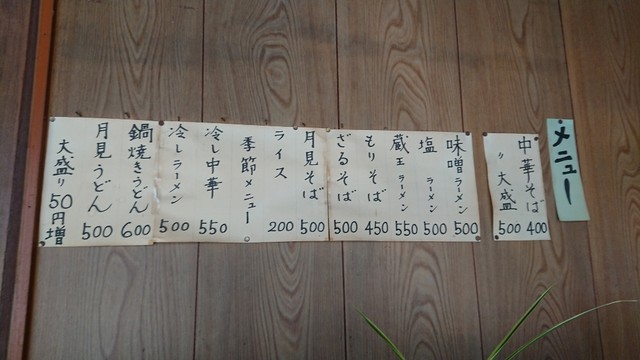 メニュー
中華そば 400
〃 大盛 500
味噌ラーメン 500
塩ラーメン 500
蔵王ラーメン 550
もりそば 450
ざるそば 500
月見そば 500
ライス 200
季節メニュー
冷し中華 550
冷しラーメン 500
鍋焼きうどん 600
月見うどん 500
大盛り50円増